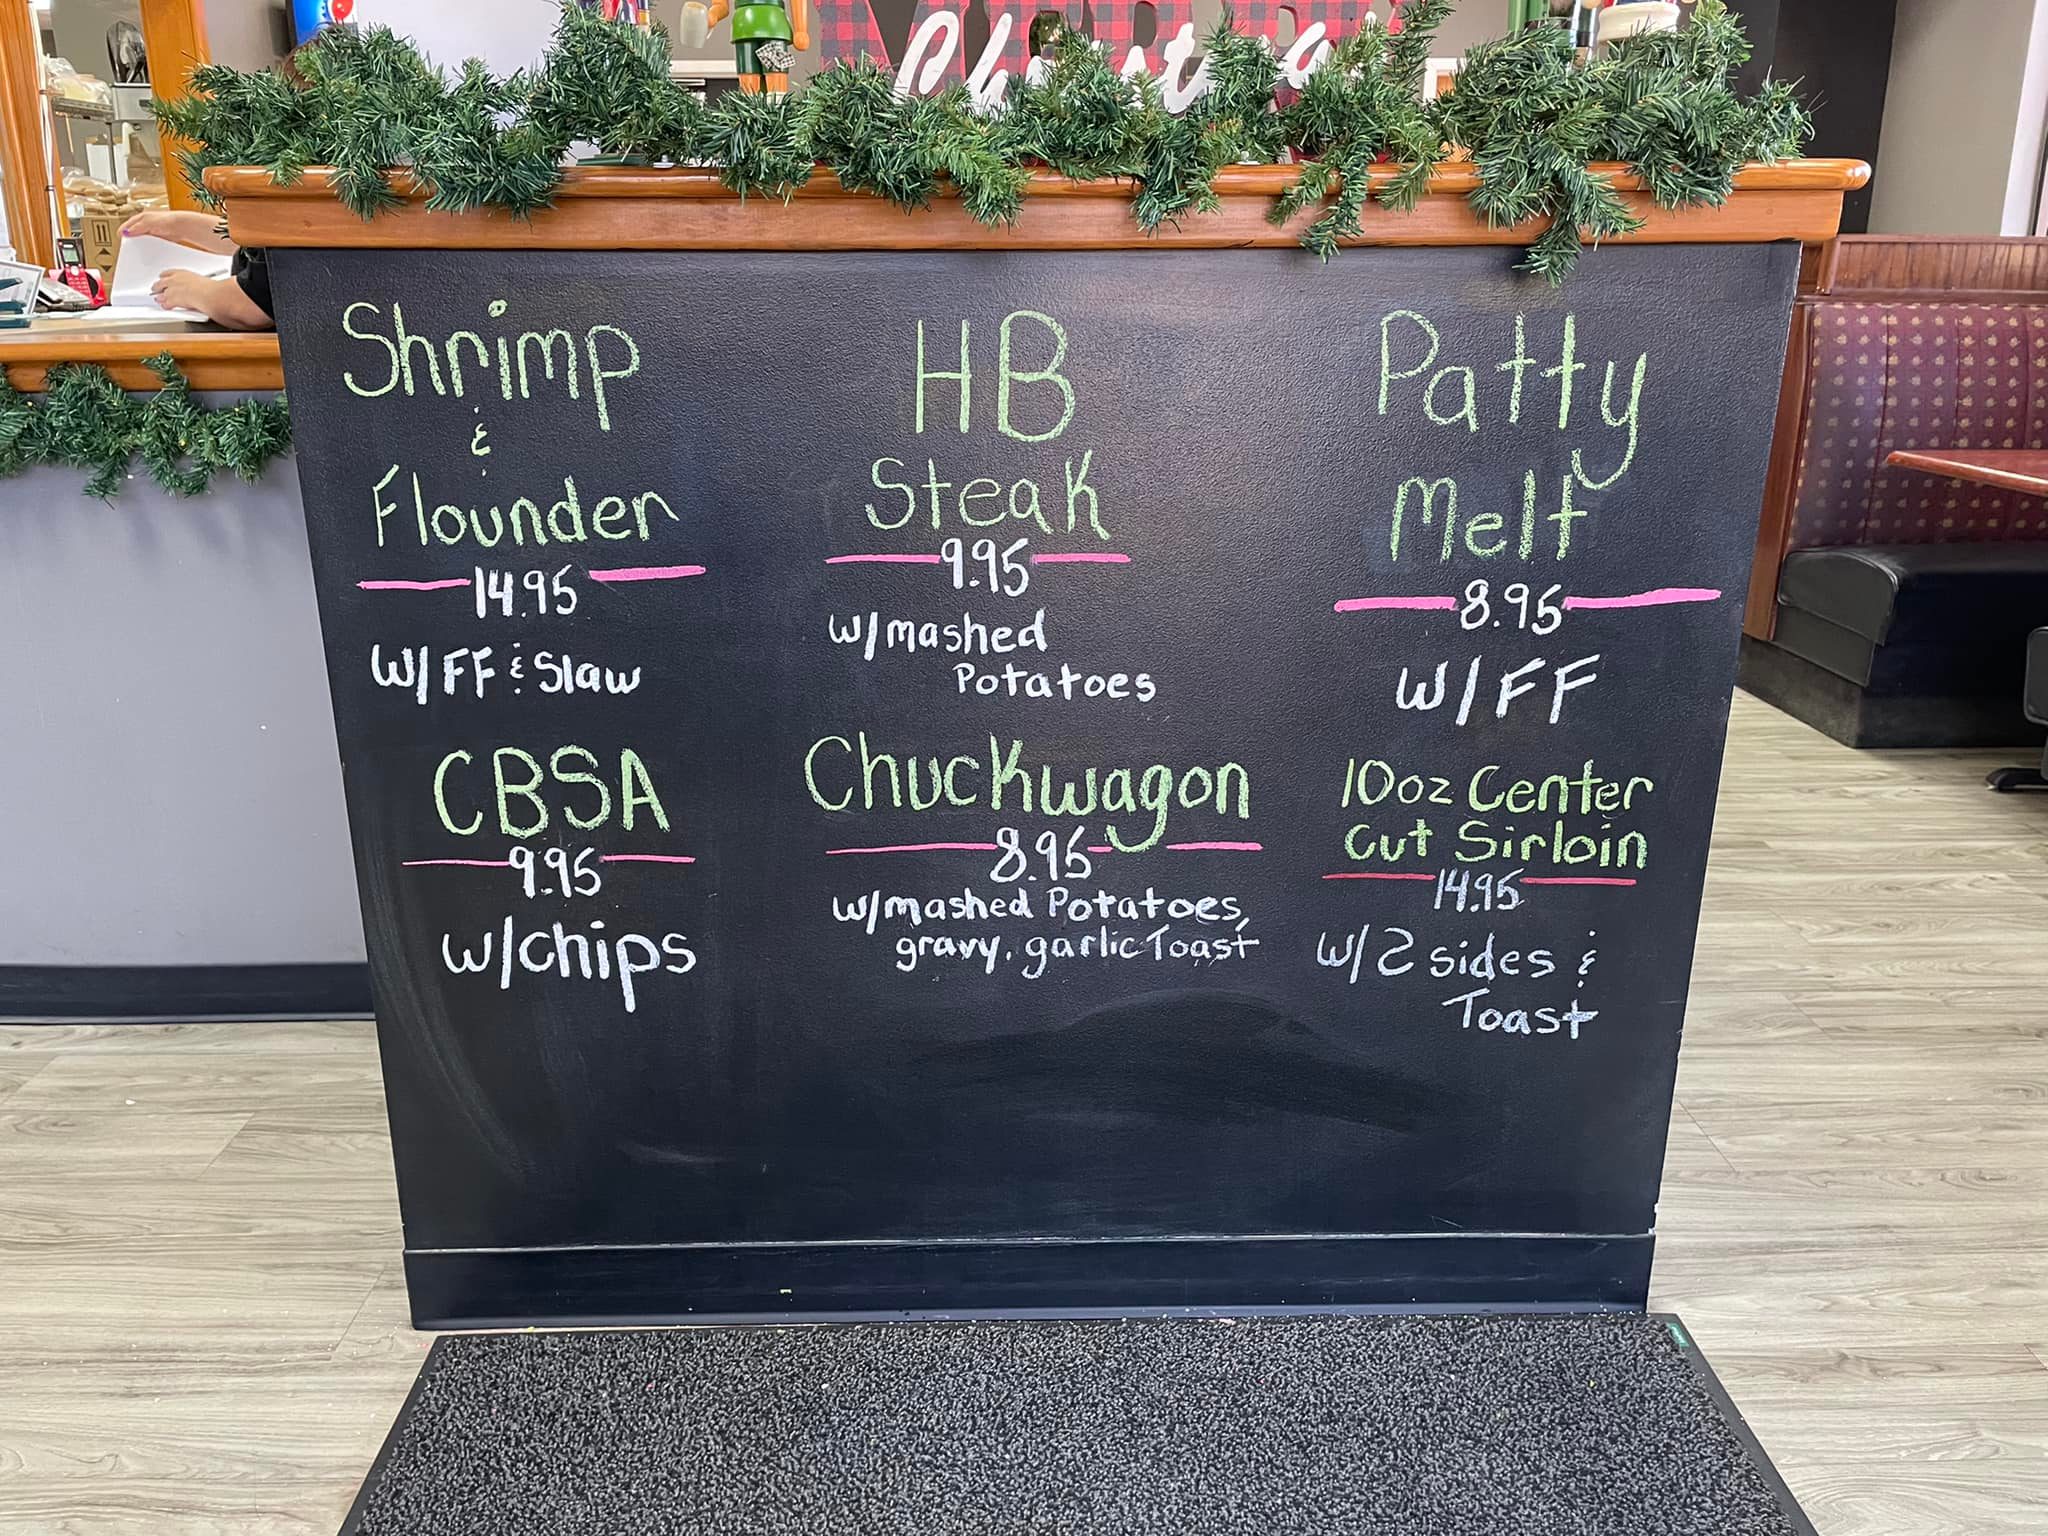 Christmas
Shrimp
&
Flounder
14.95
w/FF & Slaw
HB
Steak
9.95
w/mashed
Potatoes
Patty
Melt
8.95
w/FF
CBSA
9.95
w/chips
Chuckwagon
8.95
w/mashed Potatoes,
gravy, garlic Toast
10oz Center
Cut Sirloin
14.95
w/2 sides &
Toast